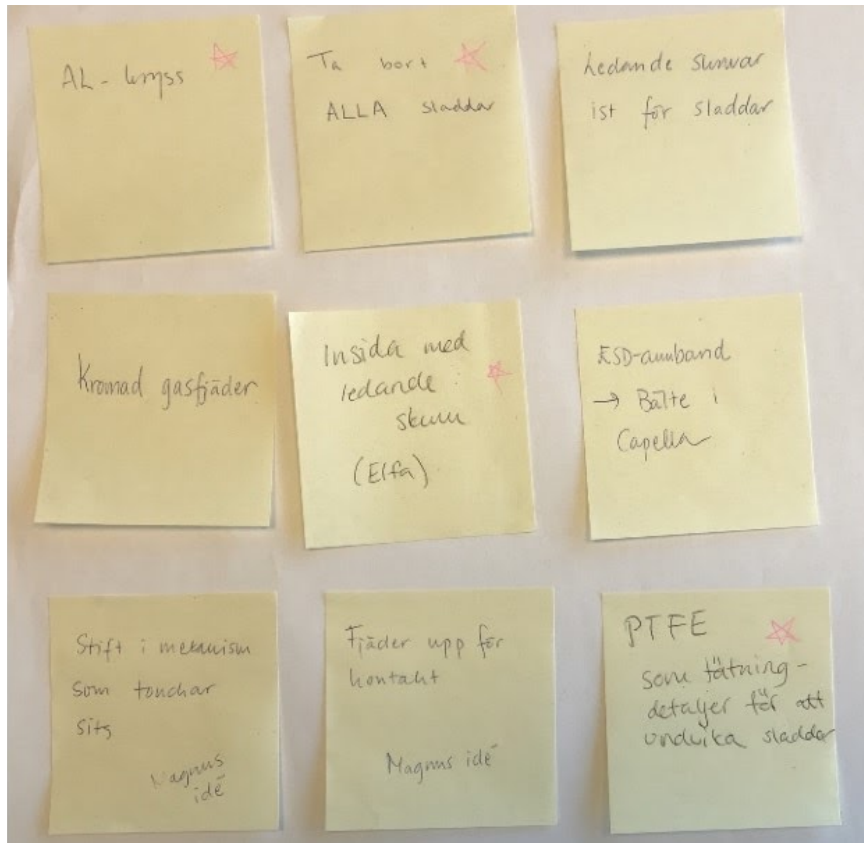 AL-kryss
Ta bort
ALLA sladdar
Ledande skruvar
ist för sladdar
Kromad gasfjäder
Insida med
ledande
skum
(Elfa)
ESD-armband
→ Bälte i
Capella
Stift i mekanism
som touchar
sits
Magnus
idé
Fjäder upp för
kontakt
Magnus idé
PTFE
som tätning-
detaljer för att
undvika sladdar